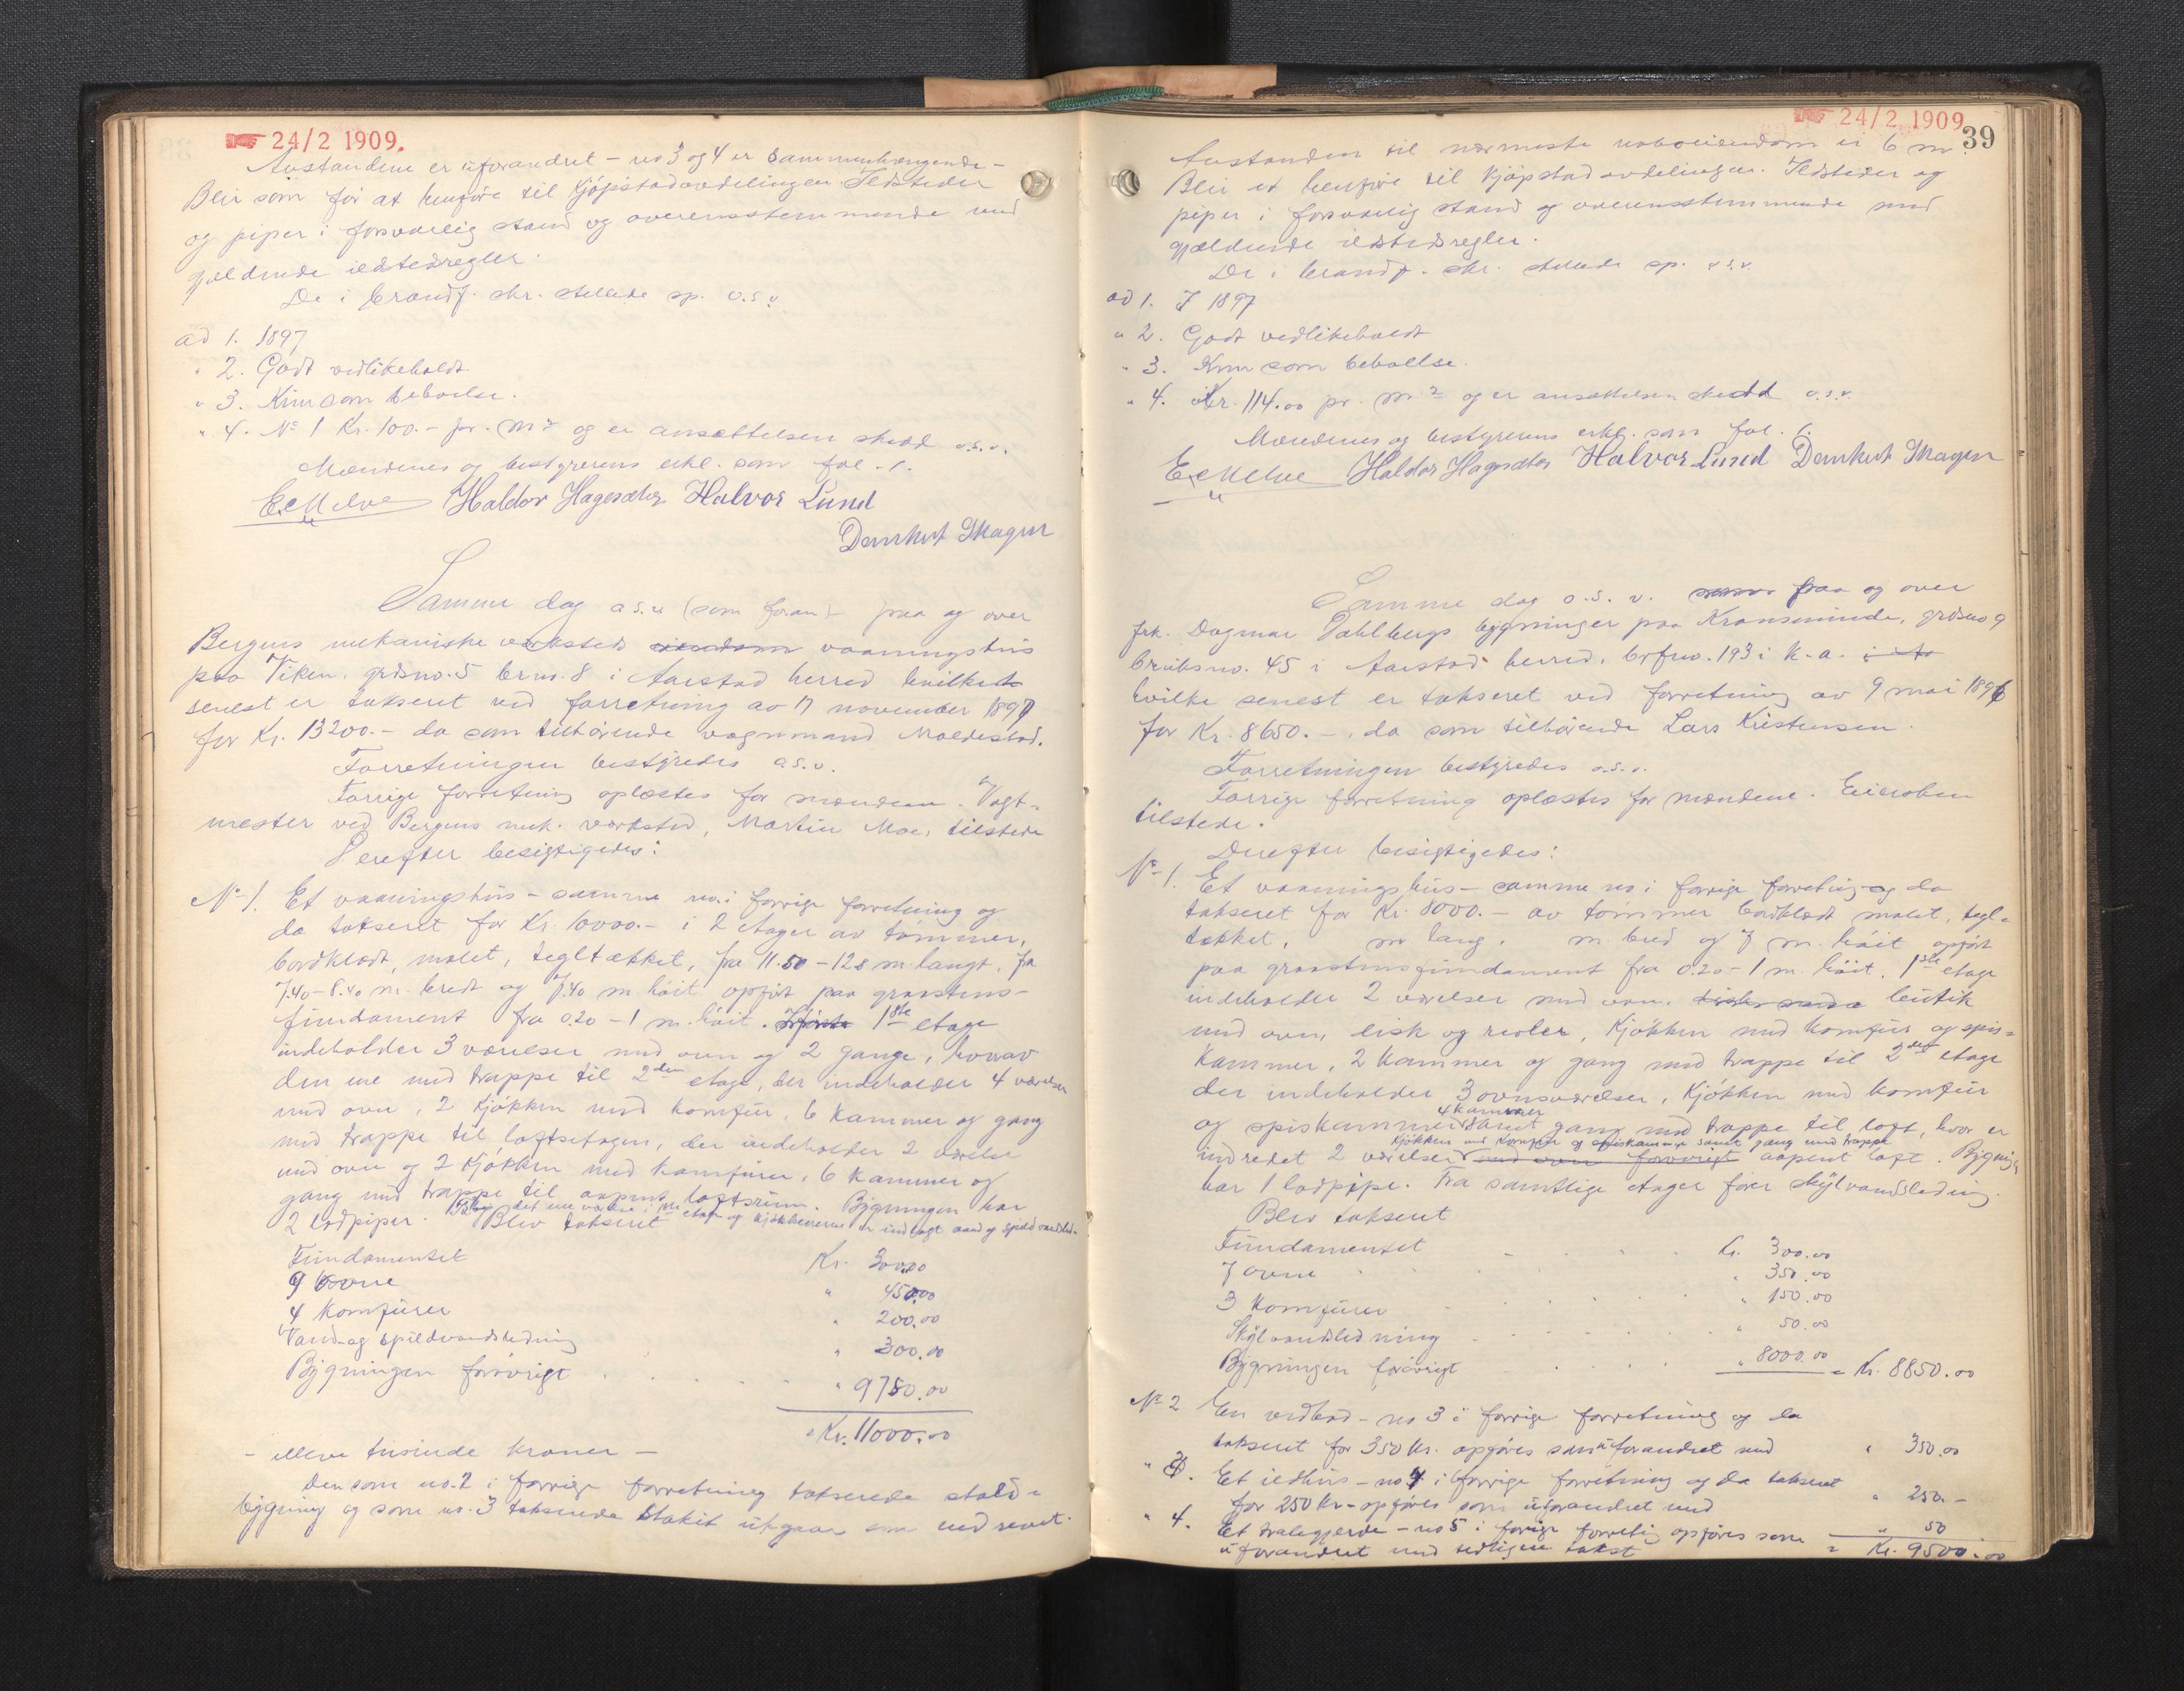 24/2 1909.
Avstandene er uforandret - no 3 og 4 er sammenhængende -
Blir som för at henföre til Kjöpstadavdelingen. Ildsteder
og piper i forsvarlig stand og overensstemmende med
gjældende ildstedsregler.
De i brandf. skr. stillede sp. o.s.v.
ad 1. 1897
" 2. Godt vedlikeholdt
" 3. Kun som beboelse.
" 4. No 1 Kr. 100.- pr. m2 og er ansættelsen skedd o.s.v.
Mændenes og bestyrerens erkl. som fol. 1.
E. Melve Haldor Hagesæter Halvor Lund
Samme dag o.s.v (som foran) paa og over
Bergens mekaniske verksteds eiendom vaaningshus
paa Viken, grdsno. 5 brno. 8 i Aarstad herred hvilket
senest er takseret ved forretning av 17 november 1897
for Kr. 13200.- da som tilhörende vognmand Moldestad.
Forretningen bestyredes o.s.v.
Forrige forretning oplæstes for mændene. Vagt-
mester ved Bergens mek. værksted, Martin Moe, tilstede
Derefter besigtigedes:
No 1. Et vaaningshus - samme no. i forrige forretning og
da takseret for Kr. 10000.- i 2 etager av tömmer,
bordklædt, malet, tegltækket, fra 11.50 - 12.5 m. langt, fra
7.40 - 8.40 m. bredt og 7.40 m höit opfört paa graastens-
fundament fra 0.20 - 1 m. höit. 1ste etage
indeholder 3 værelser med ovn og 2 gange, hvorav
den ene med trappe til 2den etage, der indeholder 4 værelser
med ovn, 2 Kjökken med komfur, 6 Kammer og gang
med trappe til loftsetagen, der indeholder 2 værelse
med ovn og 2 Kjökken med komfurer, 6 Kammer og
gang med trappe til aapent loftsrum. Bygningen har
det ene værelse i 1ste etage og kjökkenerne er indlagt vand og spildvandsled-
2 lodpiper. Blev takseret
Fundamentet Kr. 300.00
9 ovne " 450.00
4 Komfurer " 200.00
Vand- og spildvandsledning " 300.00
Bygningen forövrigt " 9750.00
= Kr. 11000.00
- elleve tusinde kroner -
Den som no. 2 i forrige forretning takserede stald-
bygning og som no. 3 takserede stakit utgaar som nedrevet.
24/2 1909
39
Avstanden til nærmeste naboeiendom er 6 m.
Blir at henföre til Kjöpstadavdelingen. Ildsteder og
piper i forsvarlig stand og overensstemmende med
gjældende ildstedsregler.
De i brandf. skr. stillede sp. o.s.v.
ad 1. I 1897
" 2. Godt vedlikeholdt
" 3. Kun som beboelse.
" 4. Kr. 114.00 pr. m2 og er ansættelsen skedd o.s.v.
Mændenes og bestyrerens erkl. som fol. 1.
E. Melve Haldor Hagesæter Halvor Lund
Samme dag o.s.v. paa og over
frk. Dagmar Dahlbergs bygninger paa Kronsminde, grdsno 9
bruksno. 45 i Aarstad herred, brfno. 193 i K.a.
hvilke senest er takseret ved forretning av 9 mai 1896
for Kr. 8650.-, da som tilhörende Lars Kristensen.
Forretningen bestyredes o.s.v.
Forrige forretning oplæstes for mændene. Eiersken
tilstede.
Derefter besigtigedes:
No 1. Et vaaningshus - samme no i forrige forretning og da
takseret for Kr. 8000.- av tömmer bordklædt malet, tegl-
tækket, m lang, m. bred og 7 m. höit opfört
paa graastensfundament fra 0.20 - 1 m. höit. 1ste etage
indeholder 2 værelser med ovn, butik
med ovn, disk og reoler, Kjökken med komfur og spis-
kammer, 2 Kammer og gang med trappe til 2den etage
der indeholder 3 ovnsværelser, Kjökken med komfur
4 kammer
og spiskammer samt gang med trappe til loft, hvor er
Kjökken med komfur og spiskammer samt gang med trappe
indredet 2 værelser med ovn forövrigt aapent loft. Bygnin-
har 1 lodpipe. Fra samtlige etager förer skylvandsledning.
Blev takseret
Fundamentet Kr. 300.00
7 ovne " 350.00
3 Komfurer " 150.00
Skylvandsledning " 50.00
Bygningen forövrigt " 8000.00 = Kr. 8850.00
No 2 En vedbod - no 3 i forrige forretning og da
takseret for 350 Kr. opföres som uforandret med " 350.00
" 3. Et ildhus - no 4 i forrige forretning og da takseret
for 250 Kr - opföres som uforandret med " 250.-
" 4. Et tralegjerde - no 5 i forrige forretnig opföres som " 50
uforandret med tidligere takst = Kr. 9500.00